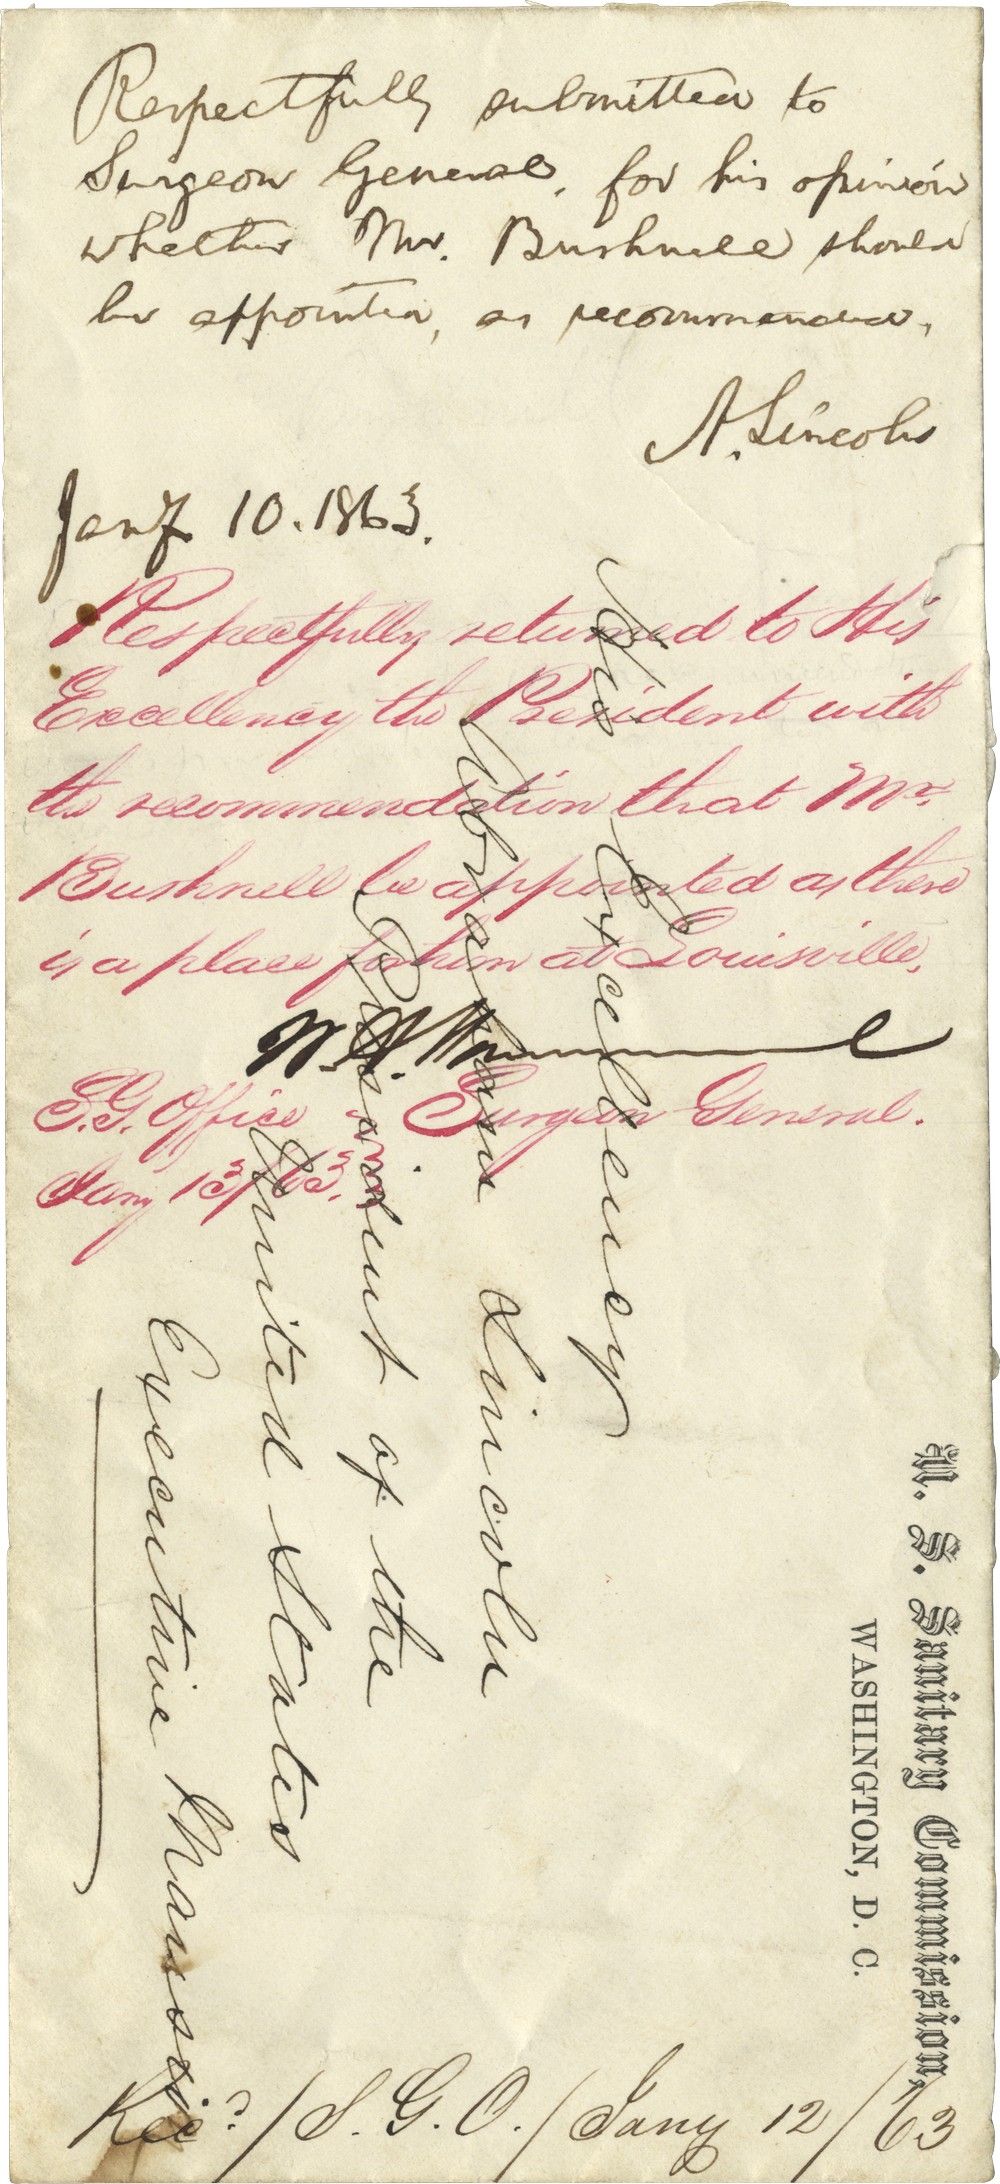 Respectfully submitted to
Surgeon General, for his opinion
whether Mr. Bushnell should
be appointed, as recommended.
A. Lincoln
Jan'y. 10. 1863.
Respectfully returned to His
Excellency the President with
the recommendation that Mr.
Bushnell be appointed as there
is a place for him at Louisville.
W. A. Hammond
S.G. Office Surgeon General.
Jany 13/63.
His Excellency
Abraham Lincoln
President of the
United States
Executive Mansion
U. S. Sanitary Commission,
WASHINGTON, D. C.
Recd / S. G. O. / Jany 12 / 63